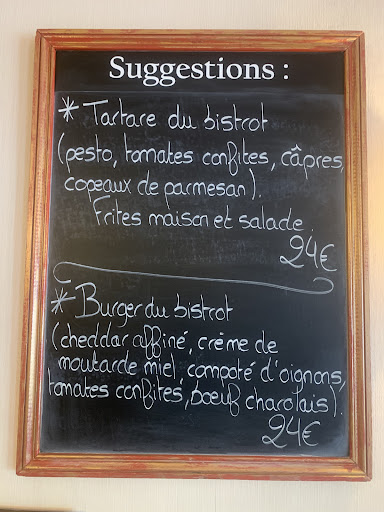 Suggestions :
* Tartare du bistrot
(pesto, tomates confites, câpres,
copeaux de parmesan).
Frites maison et salade.
24€
* Burger du bistrot
(cheddar affiné, crème de
moutarde miel, compoté d'oignons,
tomates confites, bœuf charolais).
24€